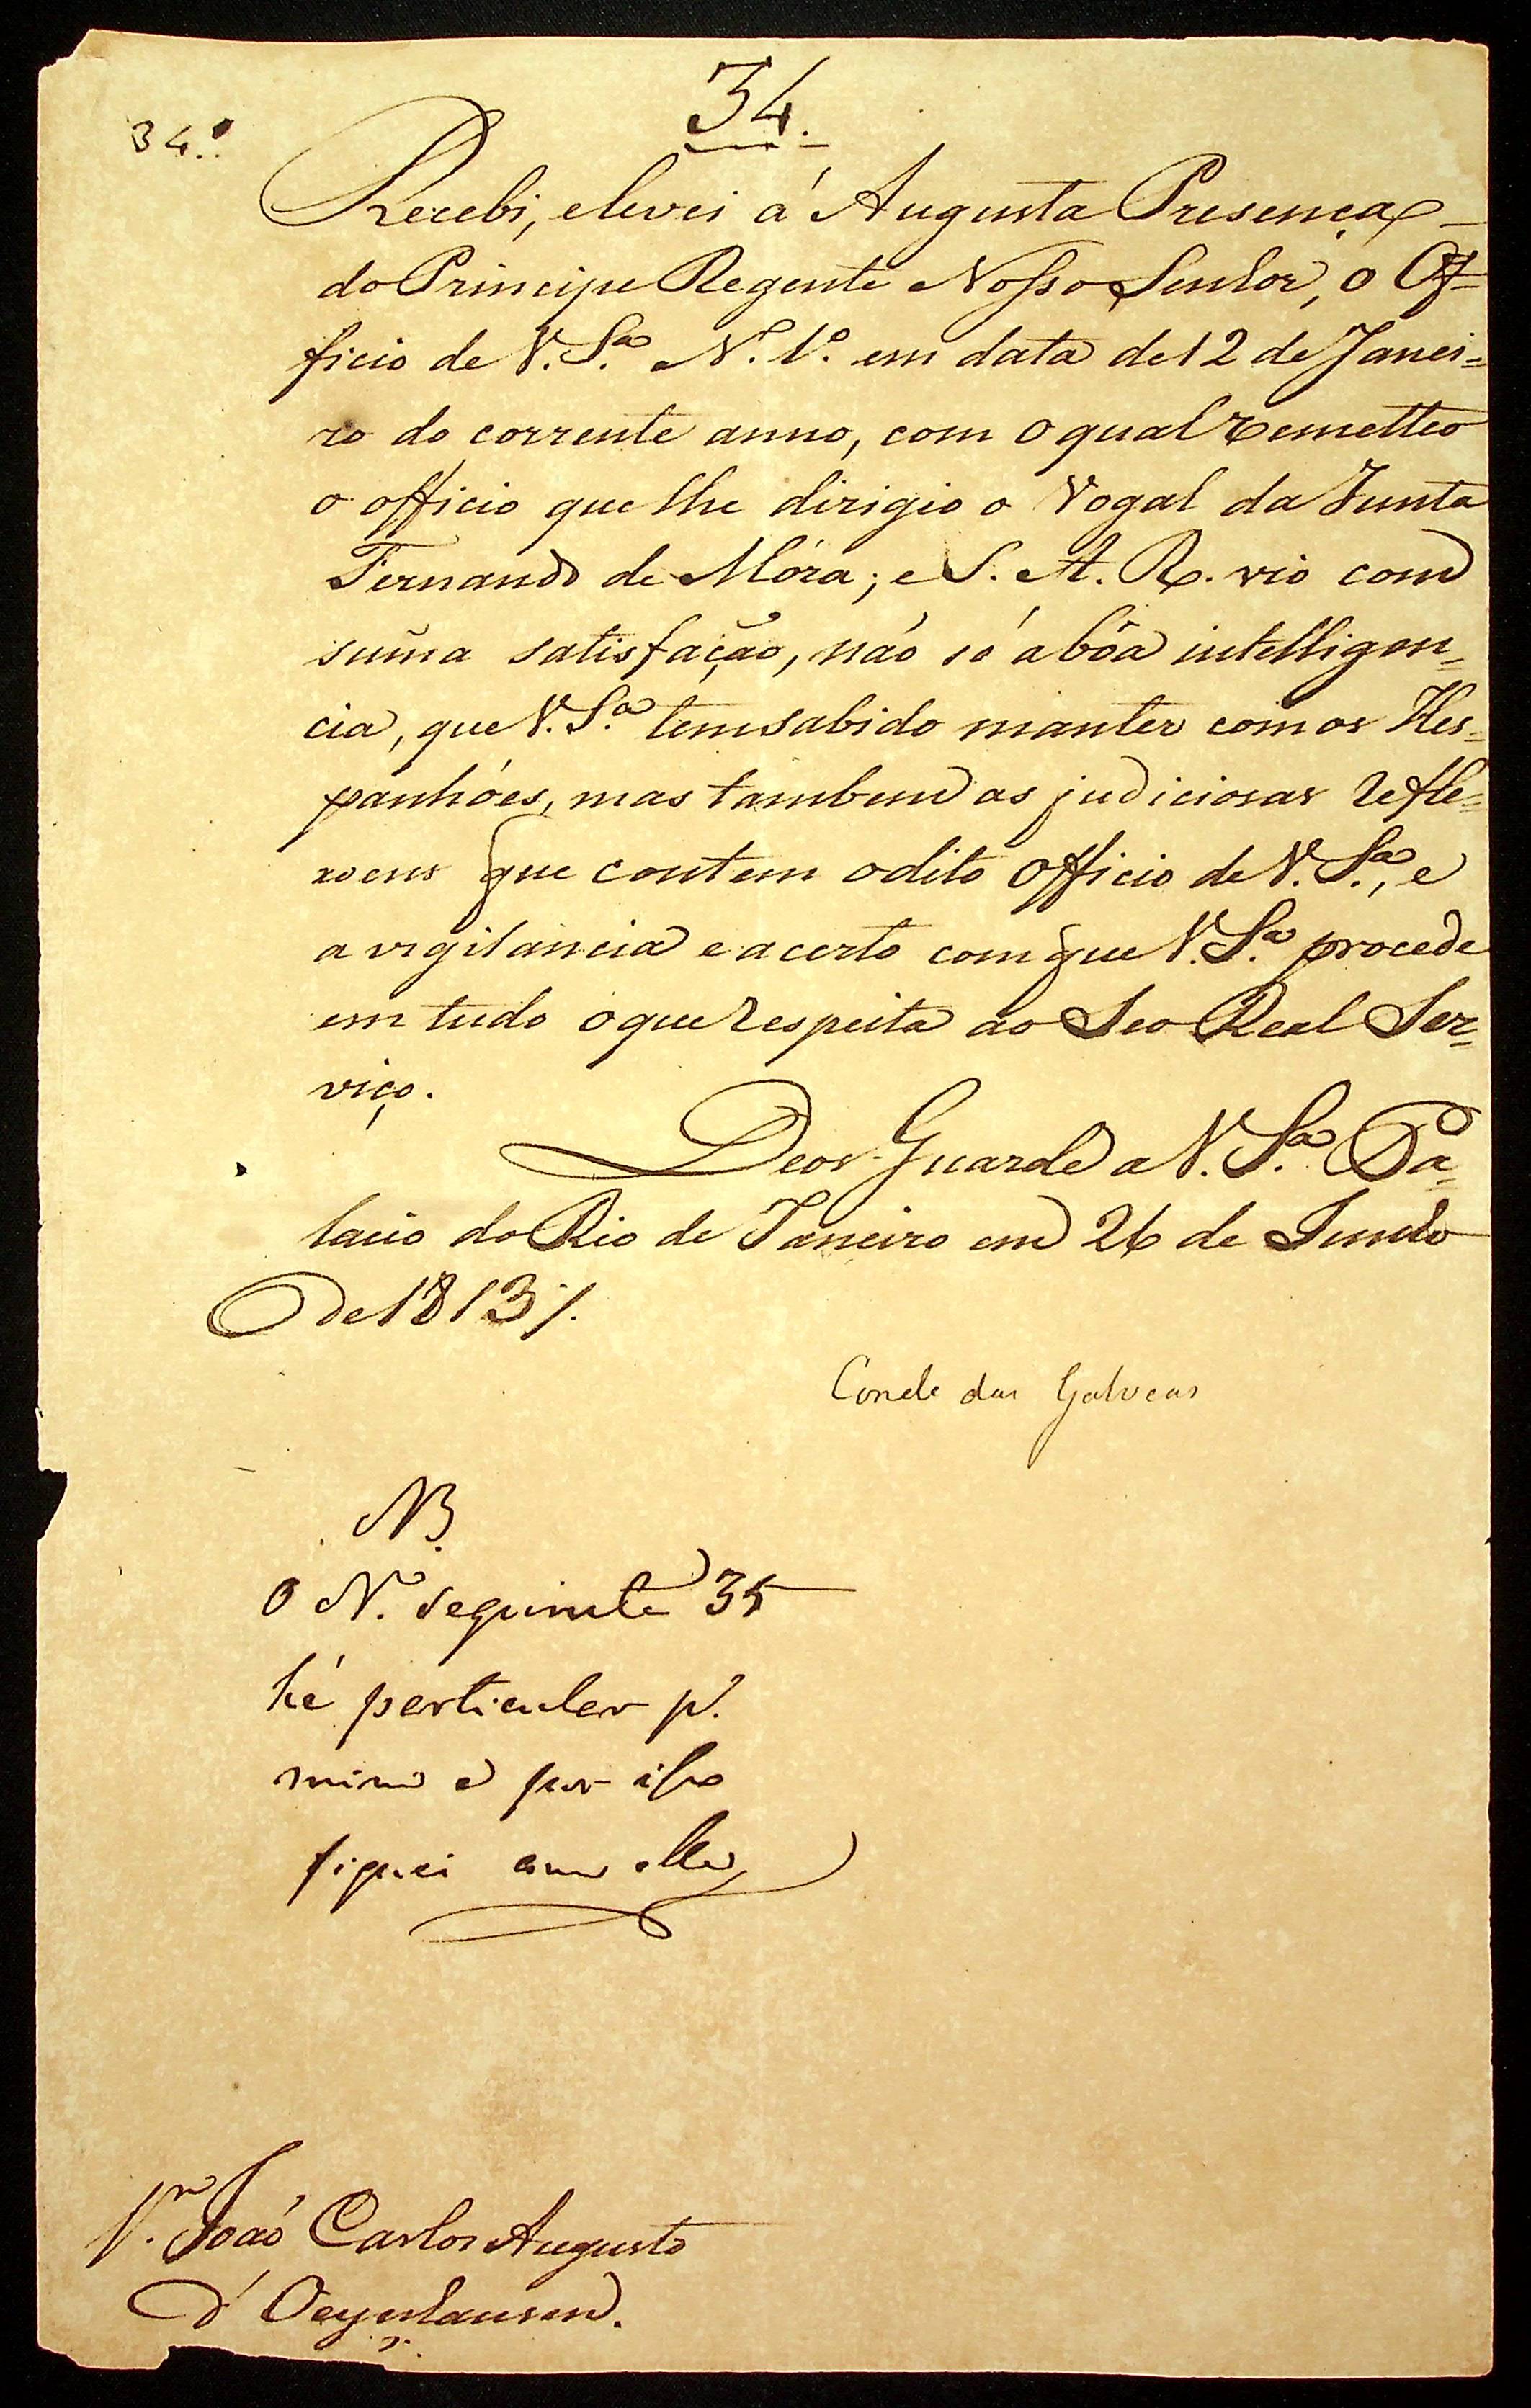 34.
34.º
Recebi, elevei á Augusta Presença
do Principe Regente Nosso Senhor, o Of-
ficio de V. S.ª N.º 1.º em data de 12 de Janei=
ro do corrente anno, com o qual remetteo
o officio que lhe dirigio o Vogal da Junta
Fernando de Móra; e S. A. R. vio com
sum̃a satisfação, não só a bôa intelligen=
cia, que V. S.ª tem sabido manter com os Hes=
panhóes, mas tambem as judiciosas refle=
xoens que contem o dito Officio de V. S.ª, e
a vigilancia e acerto com que V. S.ª procede
em tudo o que respeita ao Seo Real Ser=
viço.
Deos Guarde a V. S.ª Pa=
lacio do Rio de Janeiro em 26 de Junho
de 1813 /.
Conde das Galveas
NB.
O N.º seguinte 35
hé particular p.ª
mim e por isso
fiquei com elle
João Carlos Augusto
d'Oeynhausen.